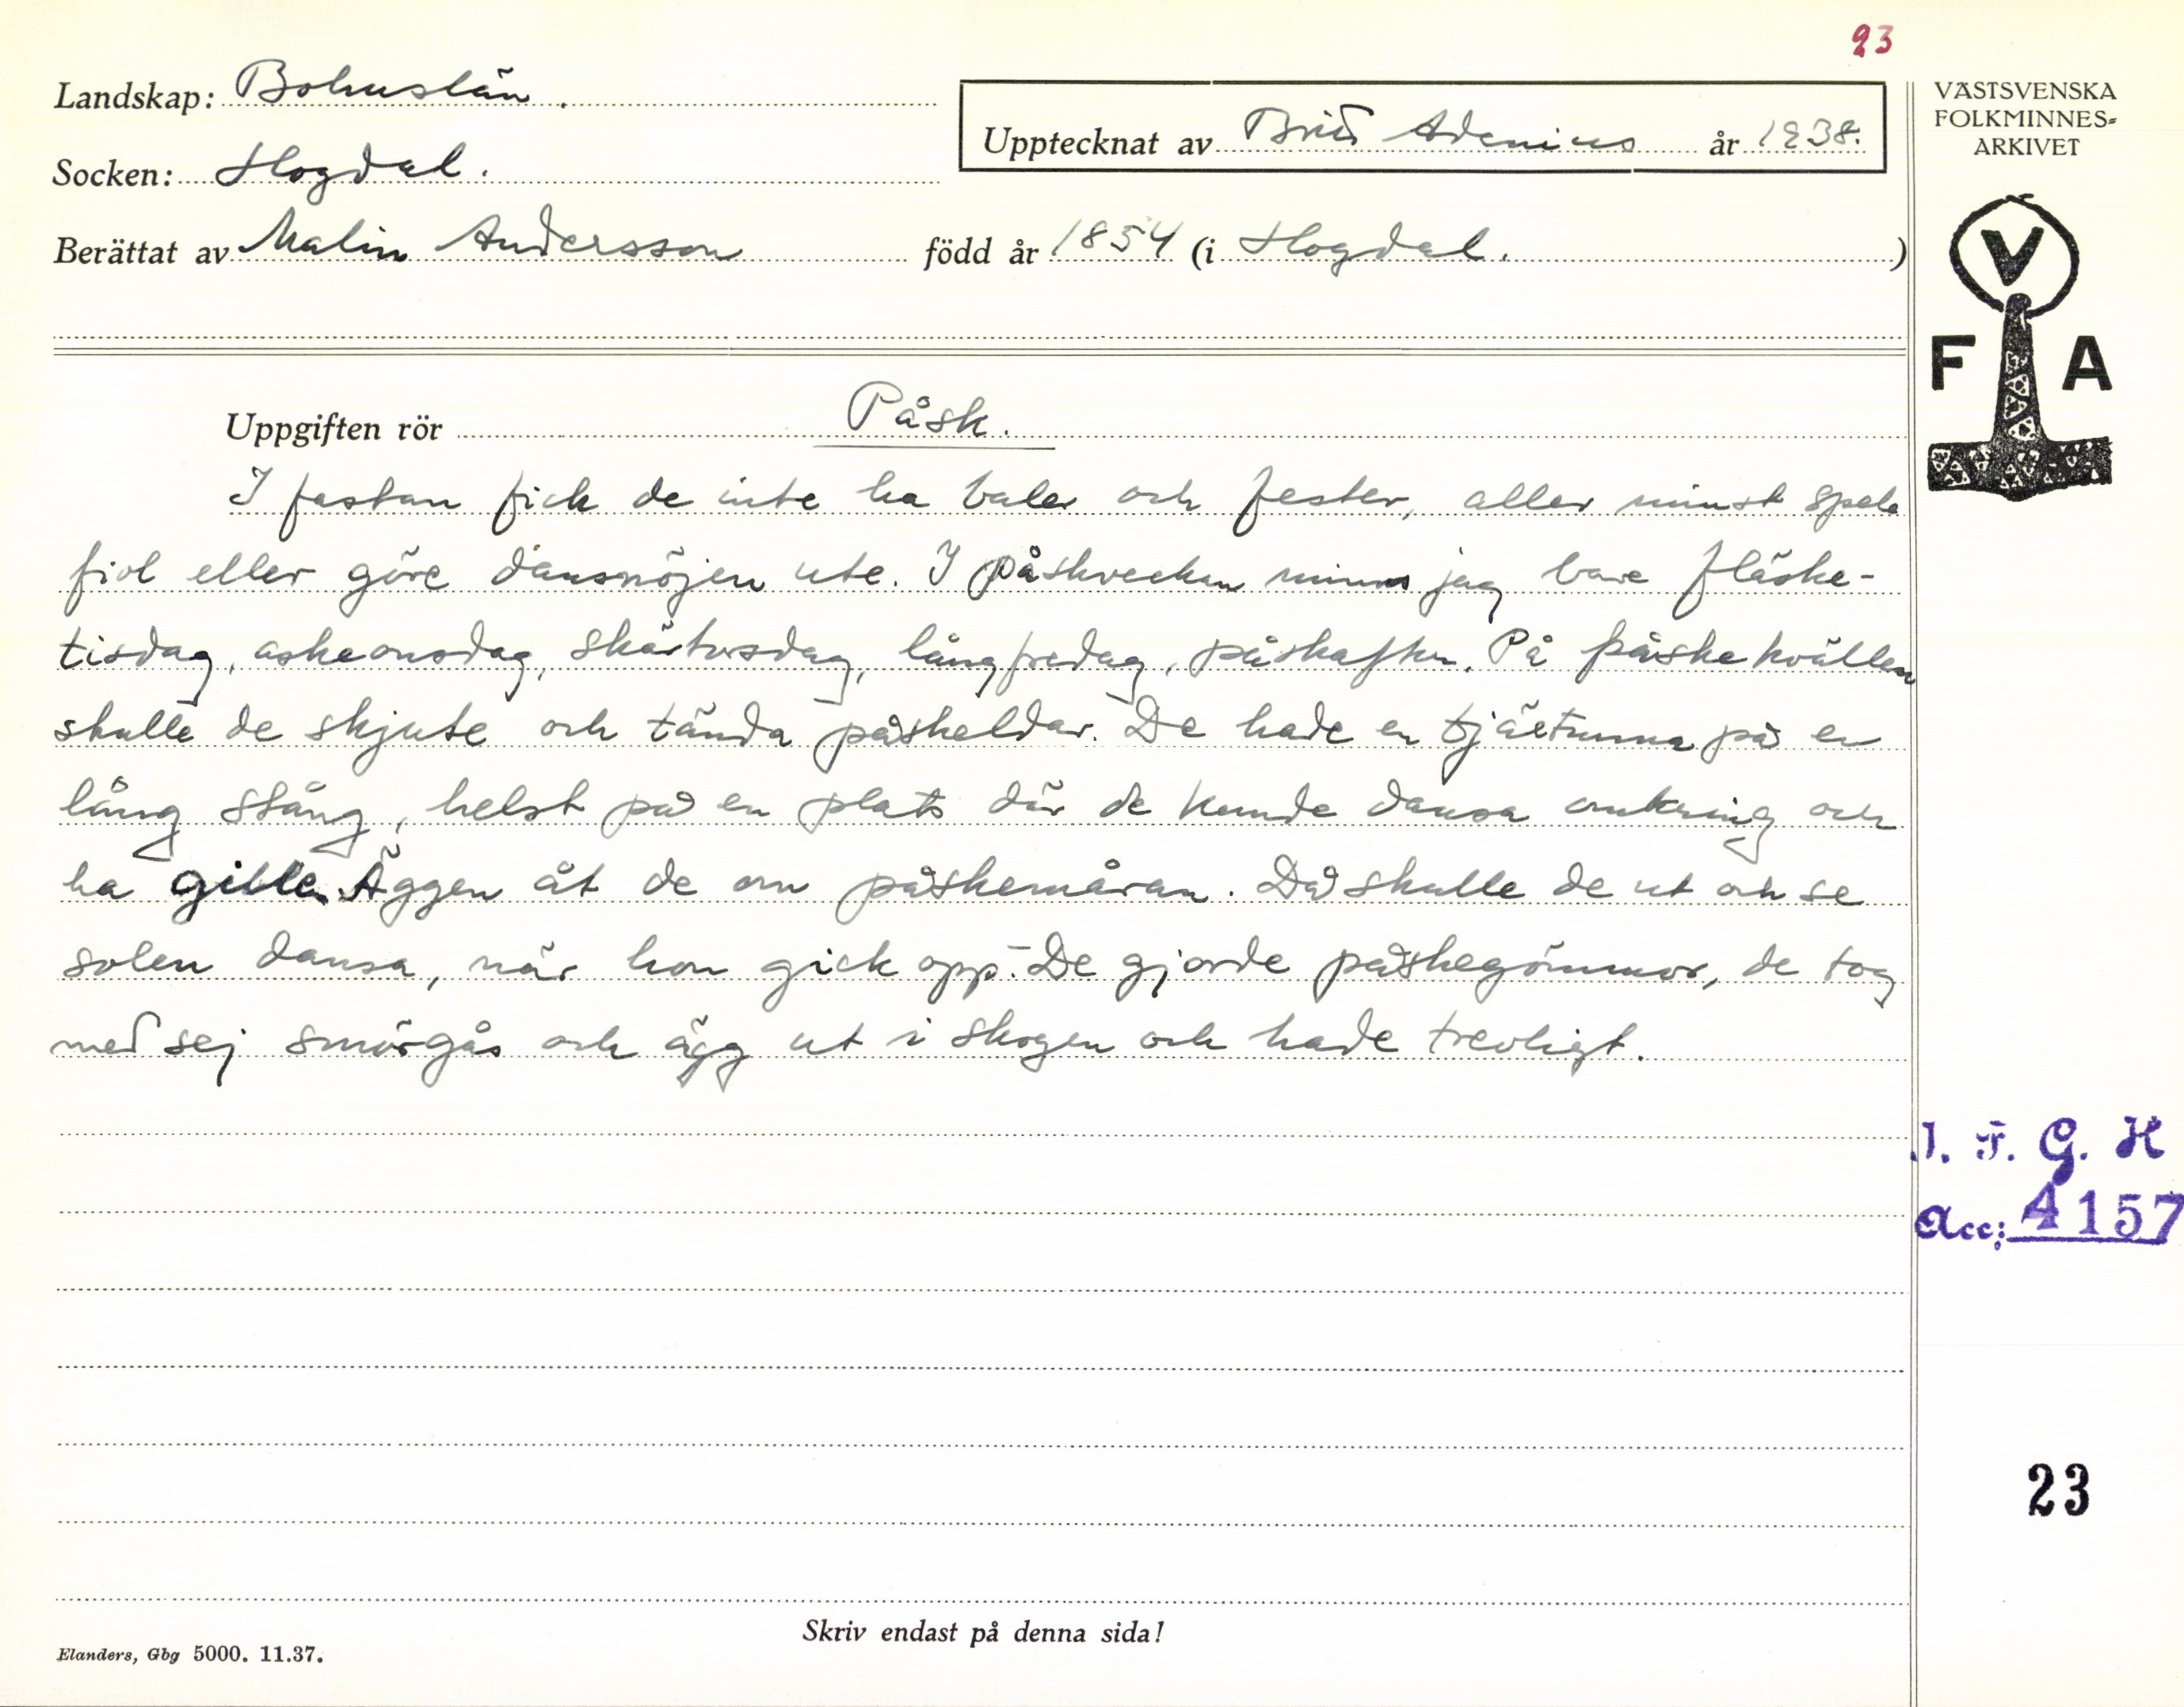 23
Landskap: Bohuslän.
Upptecknat av Britt Adenius år 1938.
Socken: Hogdal.
Berättat av Malin Andersson född år 1854 (i Hogdal.)
VÄSTSVENSKA
FOLKMINNES-
ARKIVET
V
F A
Uppgiften rör Påsk.
I fastan fick de inte ha baler och fester, aller minst spela
fiol eller göre dansnöjen ute. I påskveckan minns jag bare fläske-
tisdag, askeonsdag, skärtorsdag, långfredag, påskafton. På påskekvällen
skulle de skjute och tända påskeldar. De hade en tjäretunna på en
lång stång, helst på en plats där de kunde dansa omkring och
ha gille. Äggen åt de om påskemåran. Då skulle de ut och se
solen dansa, når hon gick opp.- De gjorde påskegömmor, de tog
med sej smörgås och ägg ut i skogen och hade trevligt.
I. F. G. H
Acc: 4157
23
Skriv endast på denna sida!
Elanders, Gbg 5000. 11.37.